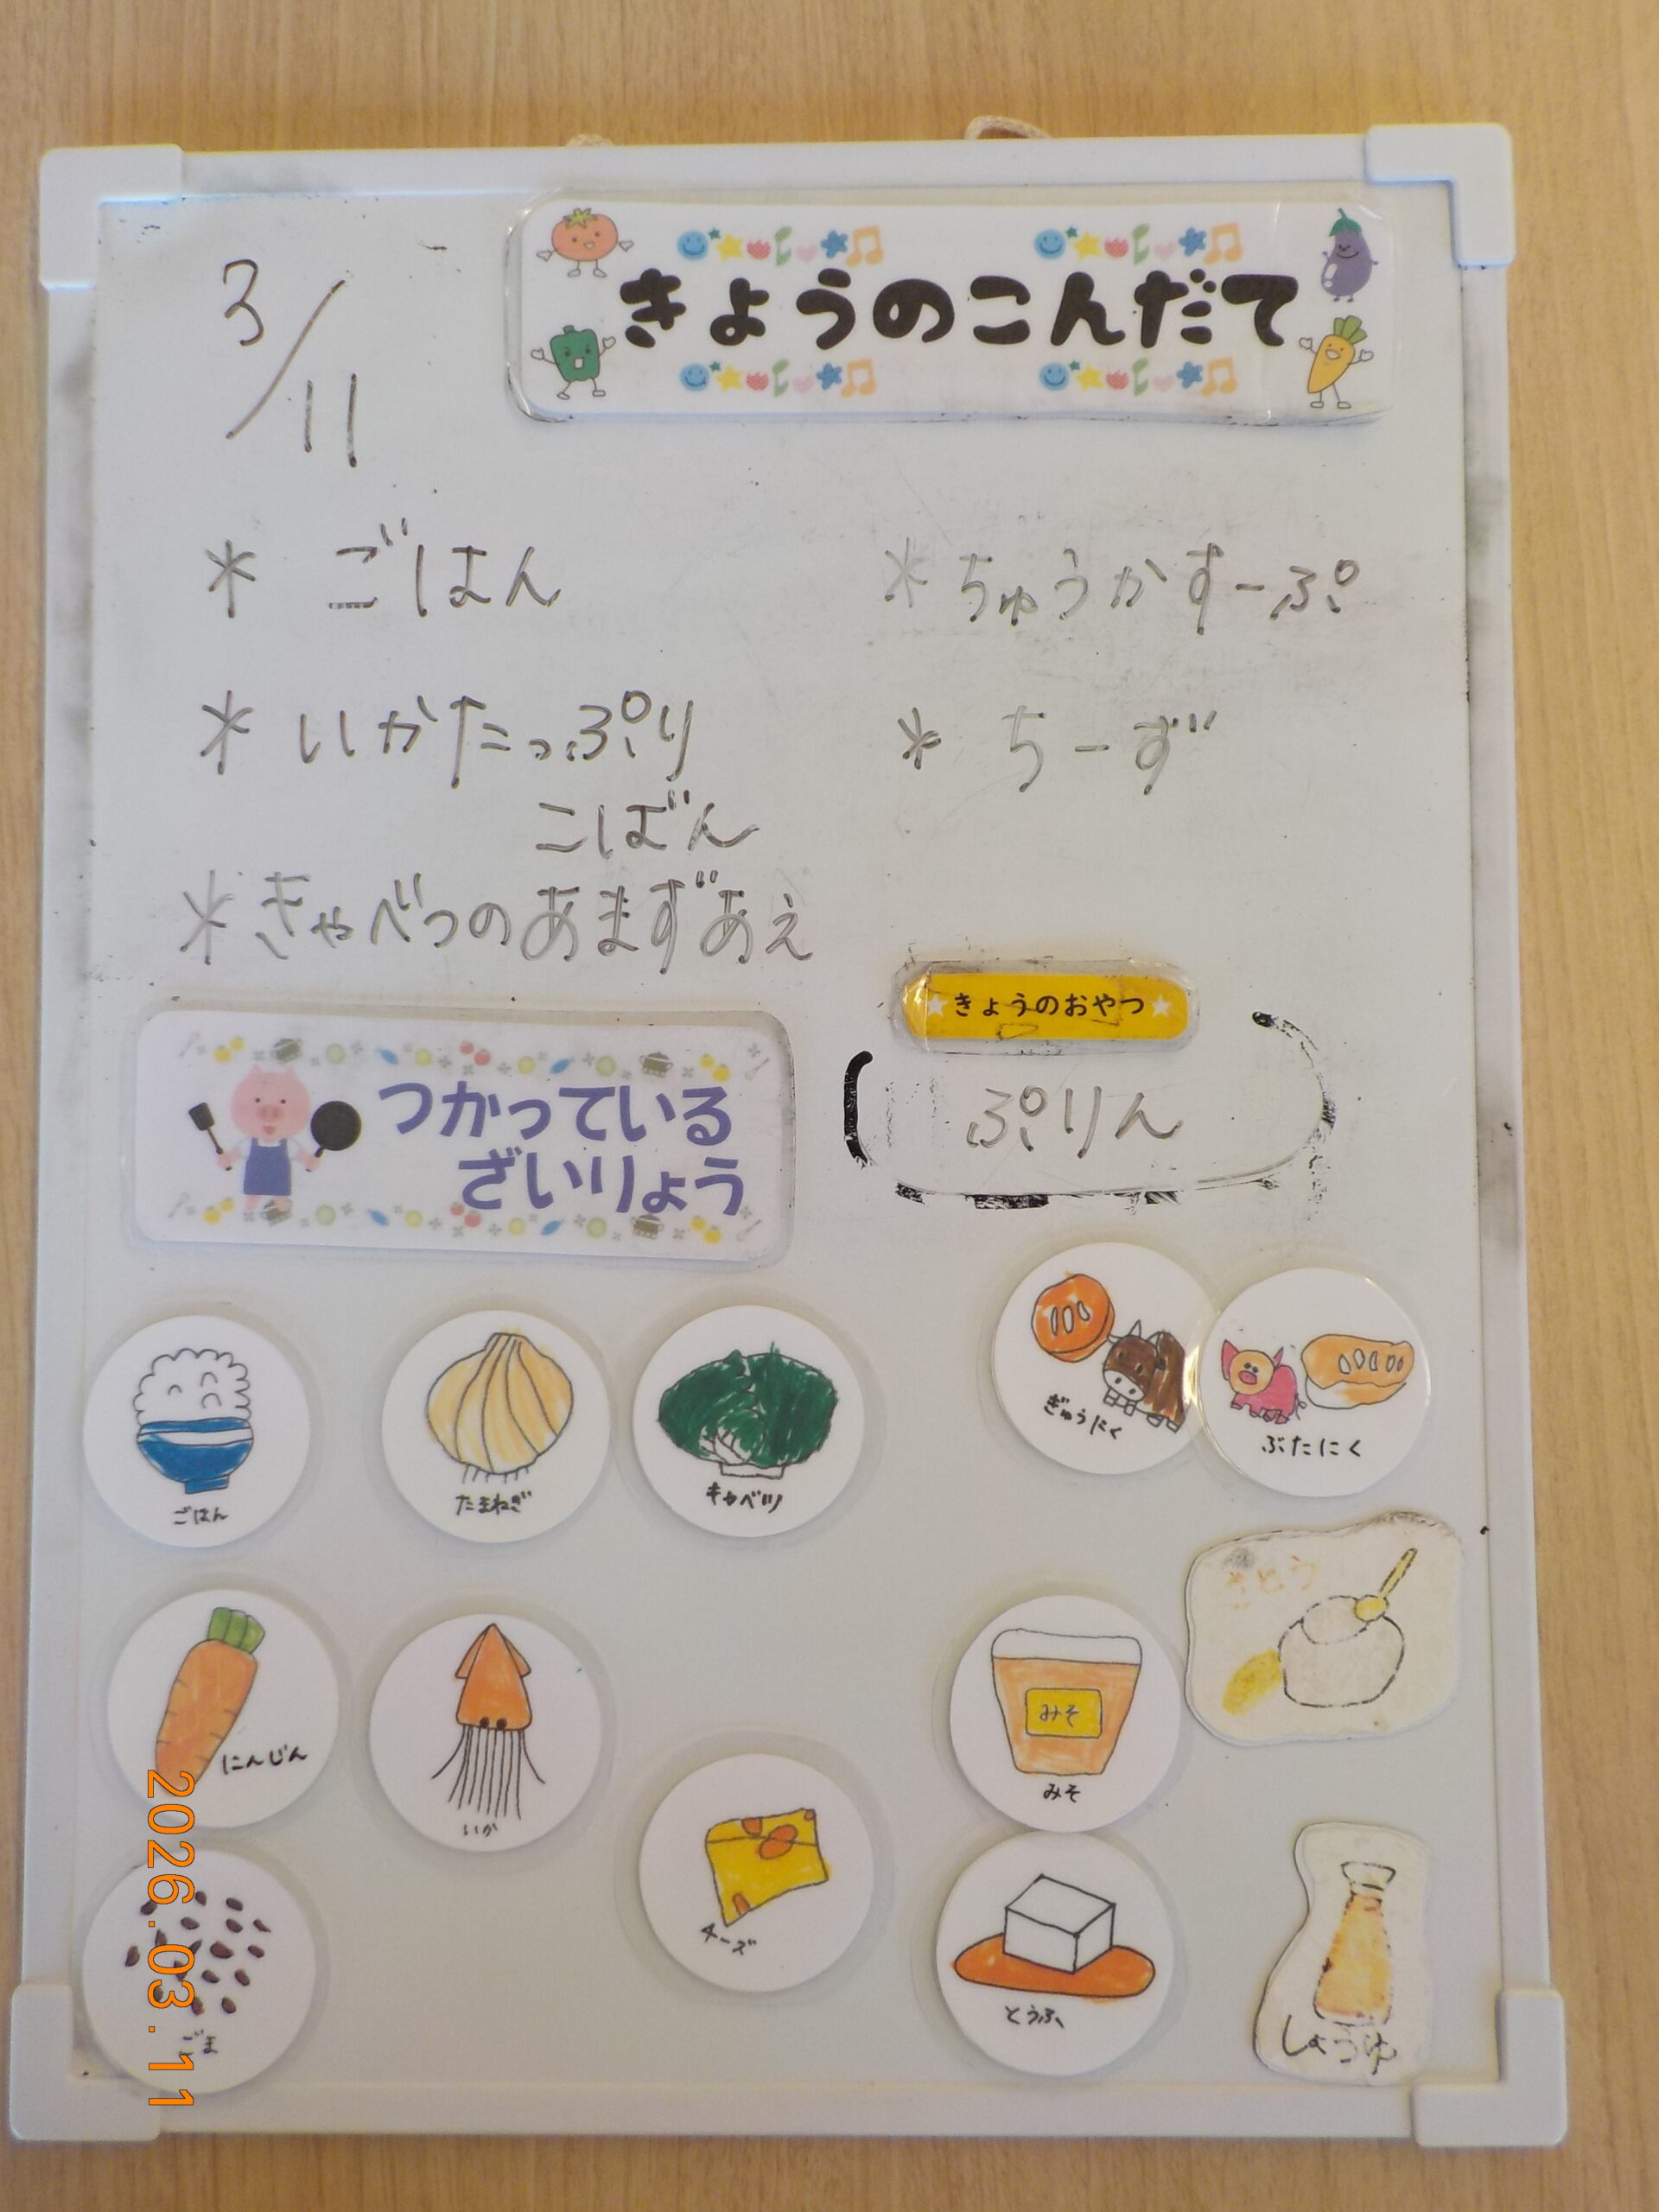 きょうのこんだて
3/11
* ごはん
* ちゅうかすーぷ
* いかたっぷり
こばん
* ちーず
* きゃべつのあまずあえ
★きょうのおやつ★
ぷりん
つかっている
ざいりょう
ごはん
たまねぎ
キャベツ
ぎゅうにく
ぶたにく
にんじん
いか
チーズ
みそ
みそ
さとう
ごま
とうふ
しょうゆ
2026.03.11